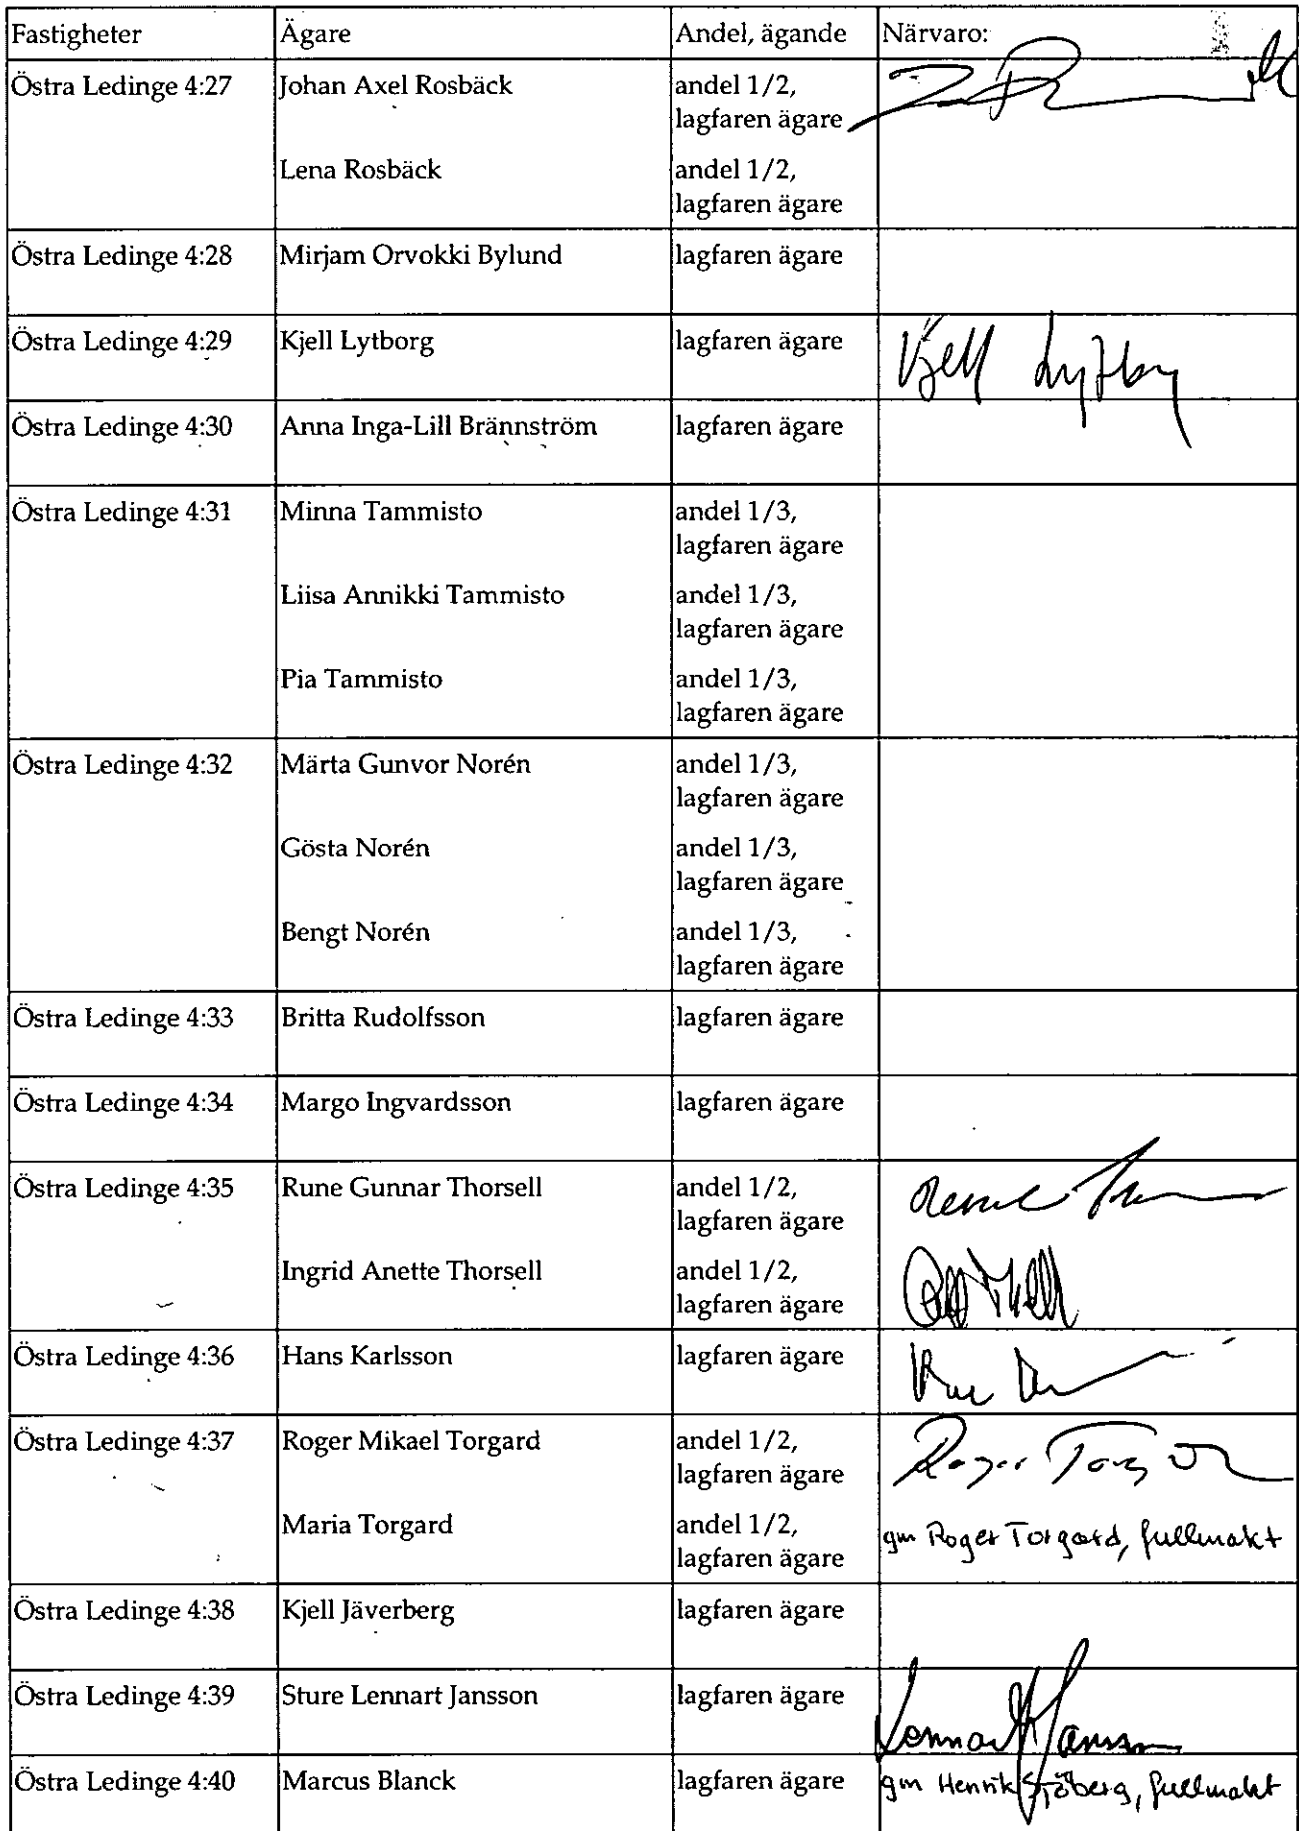 Fastigheter Ägare Andel, ägande Närvaro:
Östra Ledinge 4:27 Johan Axel Rosbäck andel 1/2,
lagfaren ägare
Lena Rosbäck andel 1/2,
lagfaren ägare
Östra Ledinge 4:28 Mirjam Orvokki Bylund lagfaren ägare
Östra Ledinge 4:29 Kjell Lytborg lagfaren ägare Kjell
Östra Ledinge 4:30 Anna Inga-Lill Brännström lagfaren ägare
Östra Ledinge 4:31 Minna Tammisto andel 1/3,
lagfaren ägare
Liisa Annikki Tammisto andel 1/3,
lagfaren ägare
Pia Tammisto andel 1/3,
lagfaren ägare
Östra Ledinge 4:32 Märta Gunvor Norén andel 1/3,
lagfaren ägare
Gösta Norén andel 1/3,
lagfaren ägare
Bengt Norén andel 1/3,
lagfaren ägare
Östra Ledinge 4:33 Britta Rudolfsson lagfaren ägare
Östra Ledinge 4:34 Margo Ingvardsson lagfaren ägare
Östra Ledinge 4:35 Rune Gunnar Thorsell andel 1/2,
lagfaren ägare
Ingrid Anette Thorsell andel 1/2,
lagfaren ägare
Östra Ledinge 4:36 Hans Karlsson lagfaren ägare
Östra Ledinge 4:37 Roger Mikael Torgard andel 1/2, Roger
lagfaren ägare
Maria Torgard andel 1/2, gm Roger Torgard, fullmakt
lagfaren ägare
Östra Ledinge 4:38 Kjell Jäverberg lagfaren ägare
Östra Ledinge 4:39 Sture Lennart Jansson lagfaren ägare Lennart Jansson
Östra Ledinge 4:40 Marcus Blanck lagfaren ägare gm Henrik Sjöberg, fullmakt